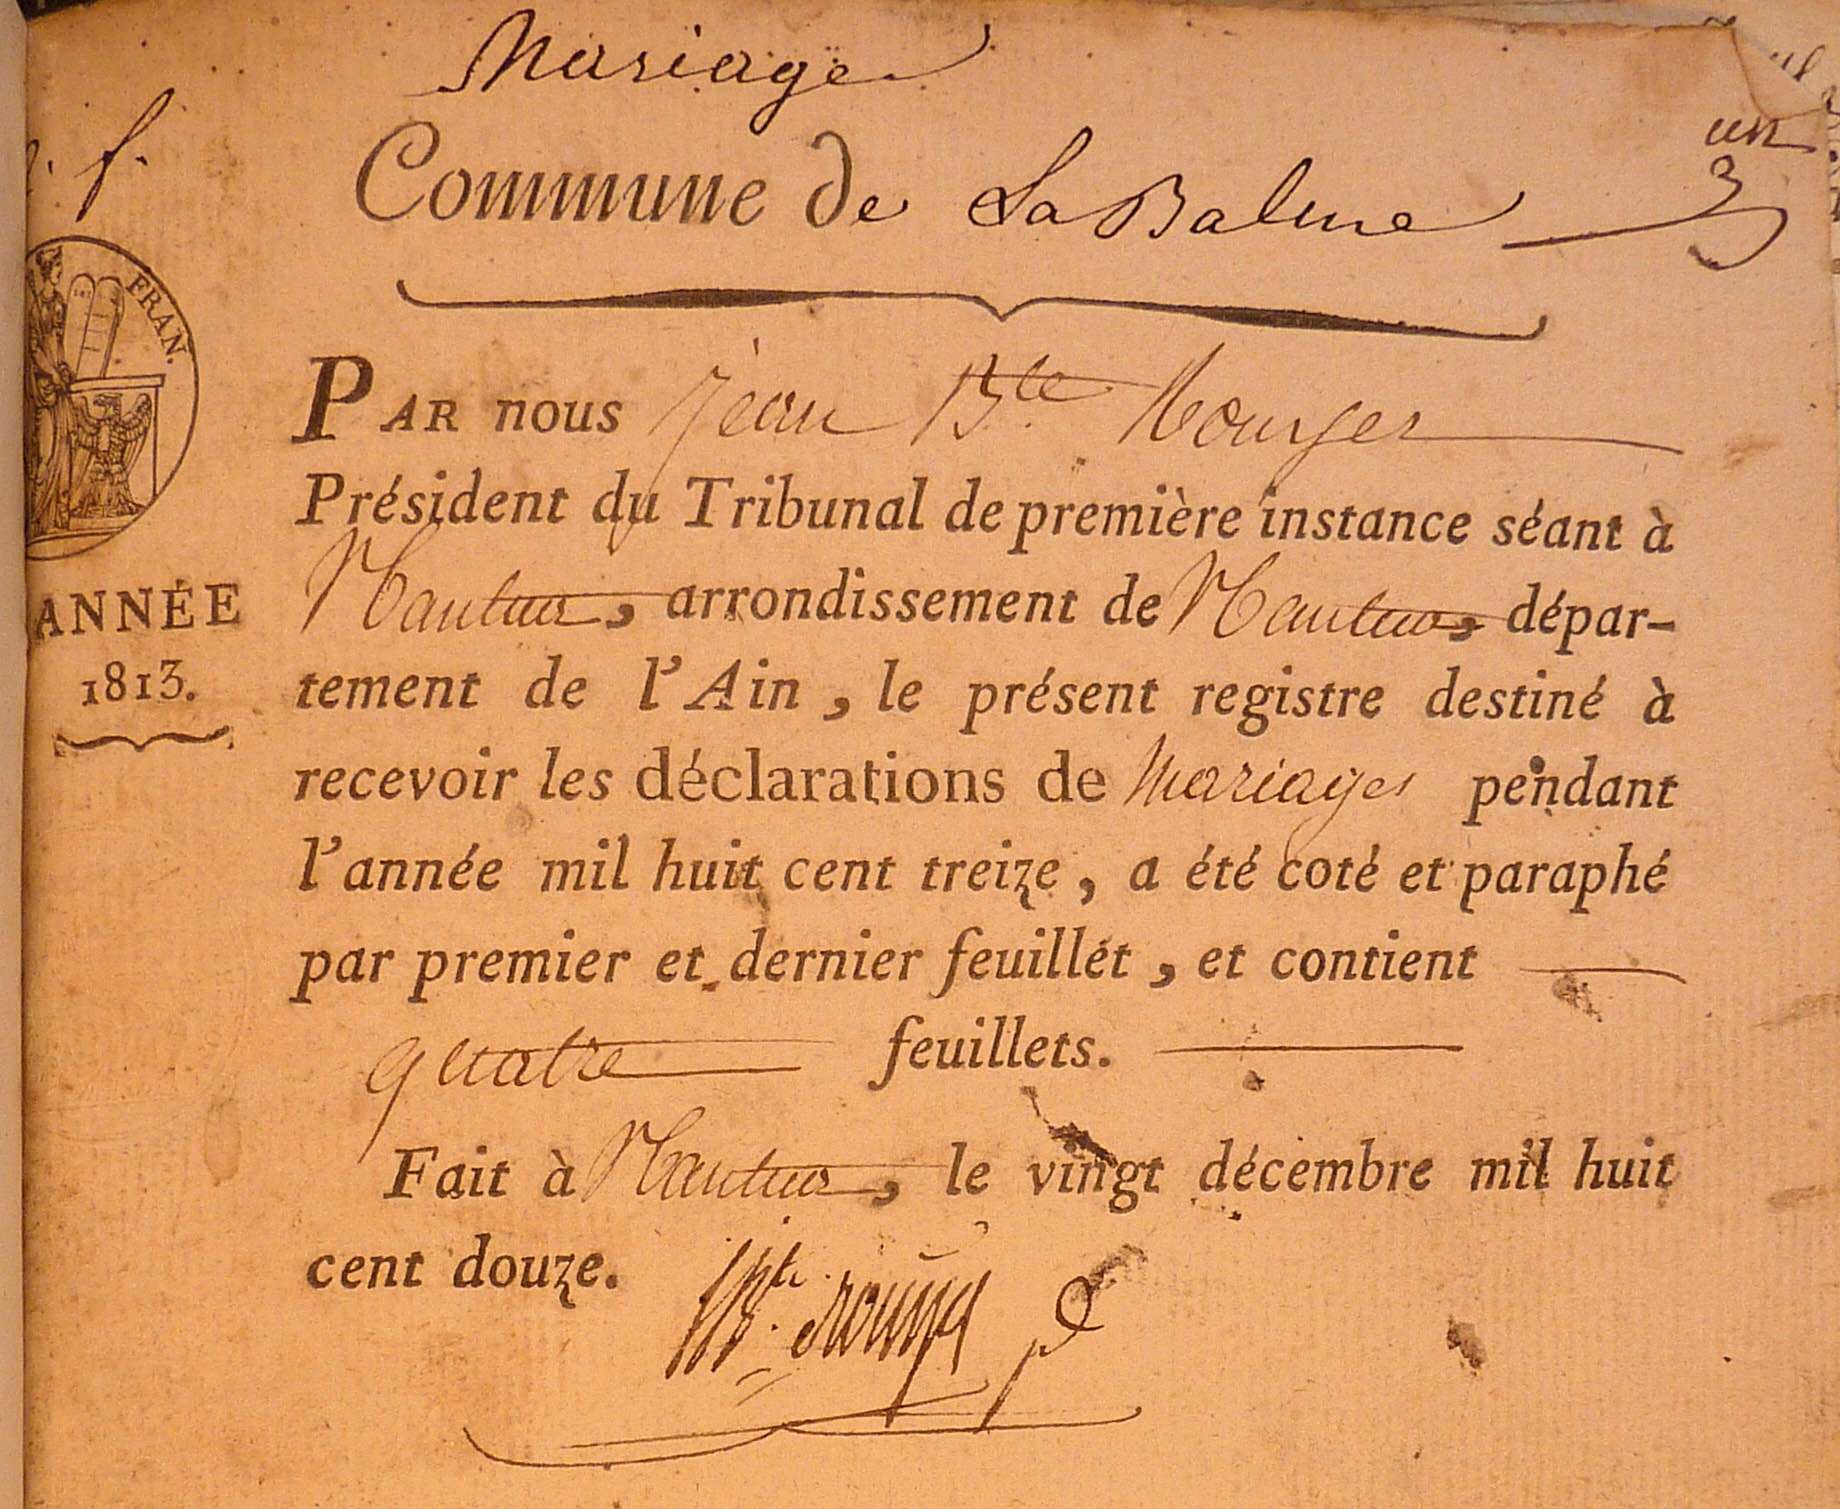 Mariage
f.
un
Commune de La Balme
FRAN.
PAR nous Jean Bte Rouyer
Président du Tribunal de première instance séant à
Nantua, arrondissement de Nantua, dépar-
tement de l'Ain, le présent registre destiné à
recevoir les déclarations de Mariages pendant
l'année mil huit cent treize, a été coté et paraphé
par premier et dernier feuillet, et contient
quatre feuillets.
Fait à Nantua, le vingt décembre mil huit
cent douze.
ANNÉE
1813.